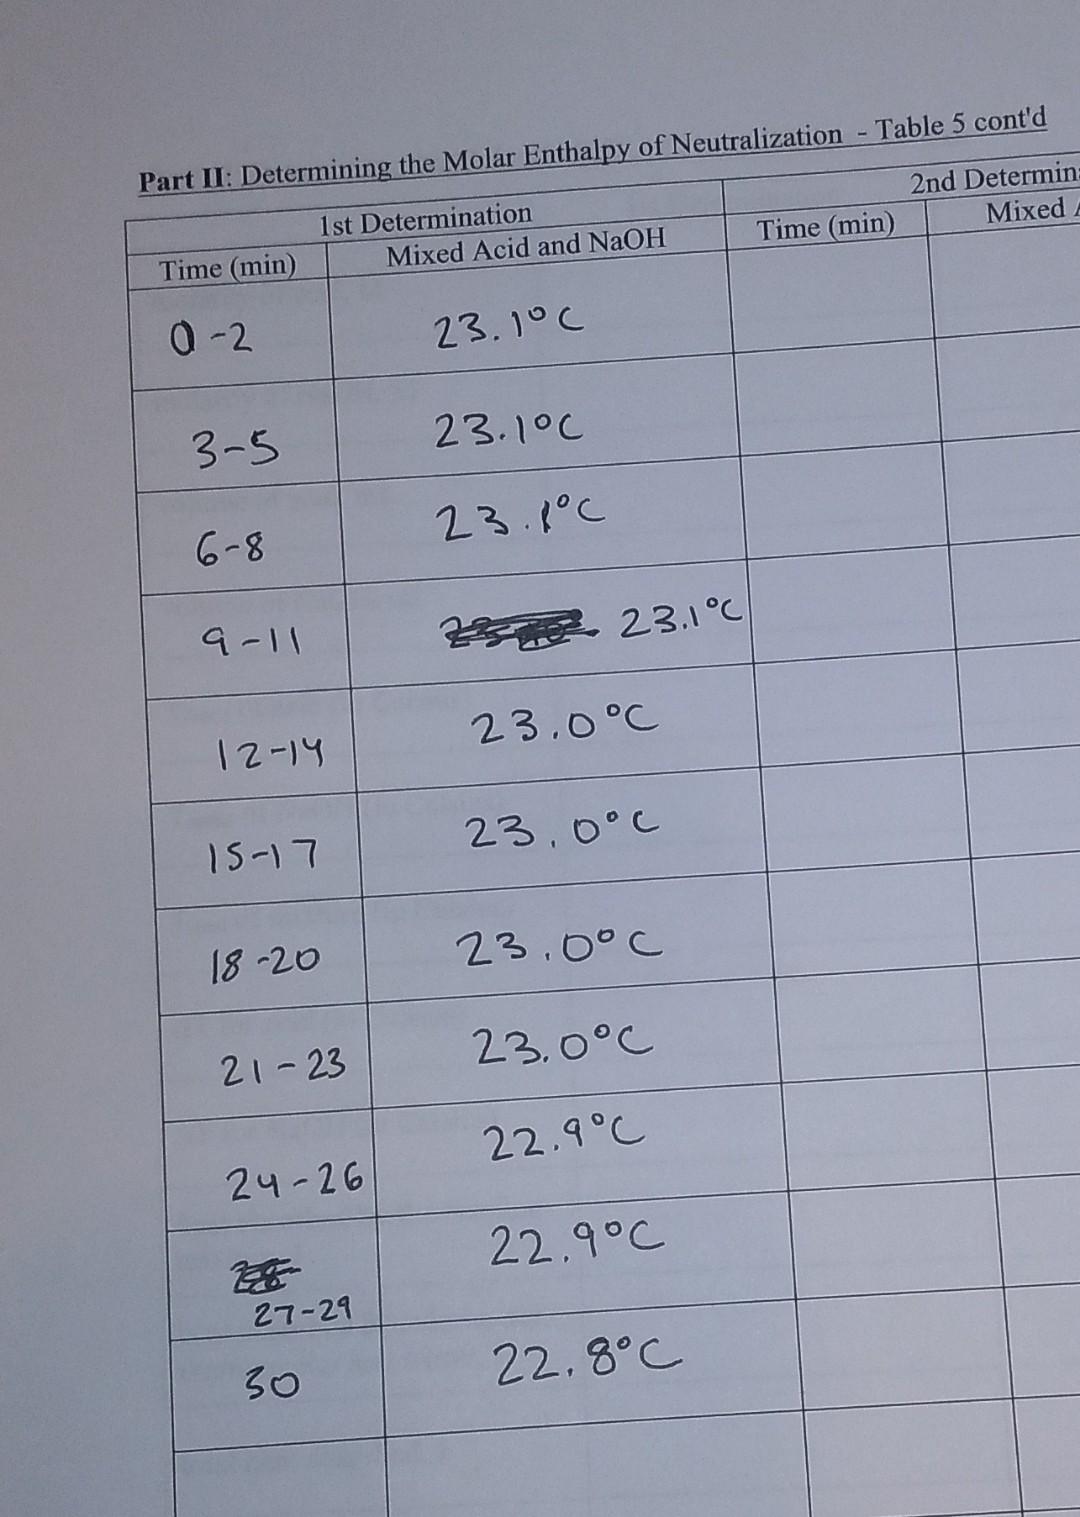 Part II: Determining the Molar Enthalpy of Neutralization - Table 5 cont'd
1st Determination
2nd Determin
Time (min)
Mixed Acid and NaOH
Time (min)
Mixed
0-2
23.1°C
3-5
23.1°C
6-8
23.1°C
9-11
23.1°C
12-14
23.0°C
15-17
23.0°C
18-20
23.0°C
21-23
23.0°C
24-26
22.9°C
27-29
22.9°C
30
22.8°C